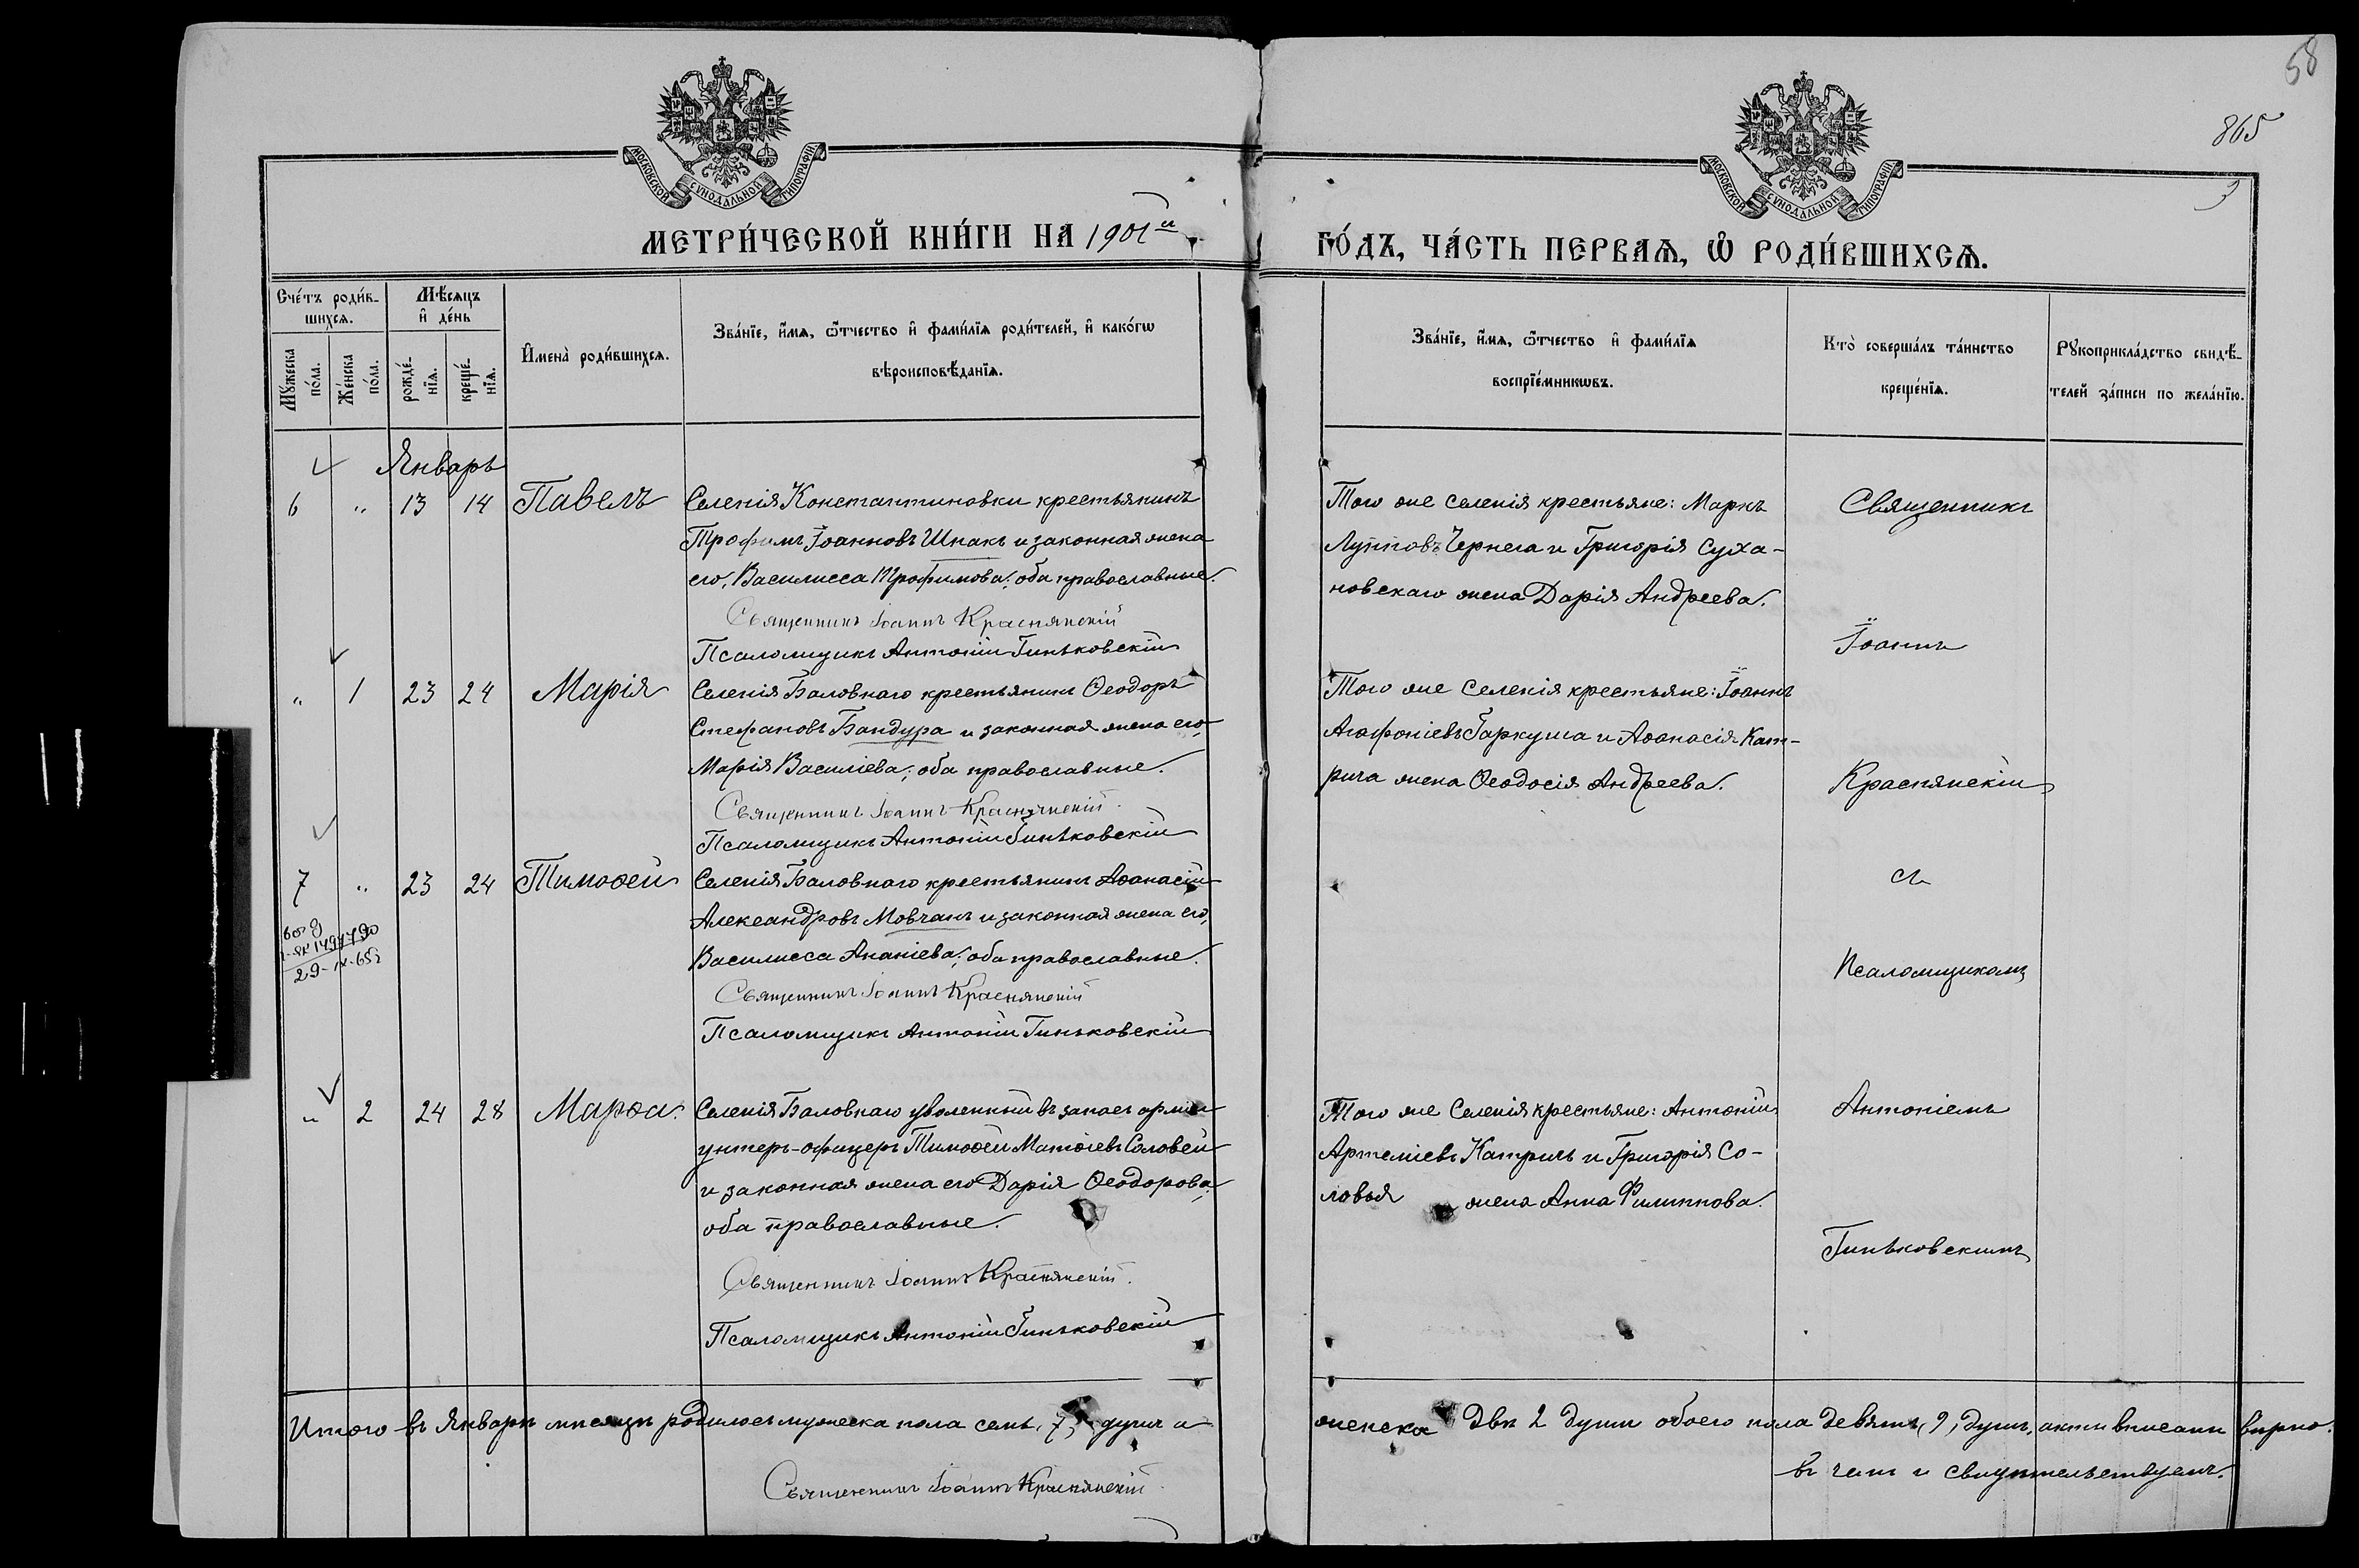 58
865
3
МОСКОВСКОЙ СУНОДАЛЬНОЙ ТИПОГРАФІИ
МОСКОВСКОЙ СУНОДАЛЬНОЙ ТИПОГРАФІИ
МЕТРИ́ЧЕСКОЙ КНИ́ГИ НА 1901й
ГО́ДЪ, ЧА́СТЬ ПЕРВАѦ, Ѡ҆ РОДИ́ВШИХСѦ.
Сче́тъ роди́в-
шихсѧ.
Мѣ́сяцъ
и҆ де́нь
Мꙋ́жеска
по́ла.
Же́нска
по́ла.
рожде́-
нїѧ.
креще́-
нїѧ.
И҆мена̀ роди́вшихсѧ.
Зва́нїе, и҆́мѧ, ѻ҆́тчество и҆ фами́лїѧ роди́телей, и҆ како́гѡ
вѣроисповѣ́данїѧ.
Зва́нїе, и҆́мѧ, ѻ҆́тчество и҆ фами́лїѧ
воспрїе́мникѡвъ.
Кто̀ соверша́лъ та́инство
креще́нїѧ.
Рꙋкоприкла́дство свидѣ́-
телей за́писи по жела́нїю.
Январь
6 " 13 14 Павелъ
Селенія Константиновки крестьянинъ
Трофимъ Іоанновъ Шпакъ и законная жена
его, Василисса Трофимова; оба православные.
Священникъ Іоаннъ Краснянскій
Псаломщикъ Антоній Гиньковскій
Того же селенія крестьяне: Маркъ
Лупповъ Чернега и Григорія Суха-
новскаго жена Дарія Андреева.
" 1 23 24 Марія
Селенія Баловнаго крестьянинъ Ѳеодоръ
Стефановъ Бандура и законная жена его,
Марія Василіева; оба православные.
Священникъ Іоаннъ Краснянскій
Псаломщикъ Антоній Гиньковскій
Того же Селенія крестьяне: Іоаннъ
Агафоніевъ Гаркуша и Аѳанасія Кат-
рича жена Ѳеодосія Андреева.
7 " 23 24 Тимоѳей
29-IX-65г
Селенія Баловнаго крестьянинъ Аѳанасій
Александровъ Мовчанъ и законная жена его,
Василисса Ананіева; оба православные.
Священникъ Іоаннъ Краснянскій
Псаломщикъ Антоній Гиньковскій
" 2 24 28 Марѳа.
Селенія Баловнаго уволенный въ запасъ арміи
унтеръ-офицеръ Тимоѳей Матѳіевъ Соловей
и законная жена его Дарія Ѳеодорова;
оба православные.
Священникъ Іоаннъ Краснянскій.
Псаломщикъ Антоній Гиньковскій
Того же Селенія крестьяне: Антоній
Артеміевъ Катричъ и Григорія Со-
ловья жена Анна Филиппова.
Священникъ
Іоаннъ
Краснянскій
съ
Псаломщикомъ
Антоніемъ
Гиньковскимъ
Итого въ Январѣ мѣсяцѣ родилось мужеска пола семь, 7, душъ а
женска двѣ 2 души обоего пола девять, 9, душъ, акты вписаны вѣрно.
въ чемъ и свидѣтельствуемъ.
Священникъ Іоаннъ Краснянскій